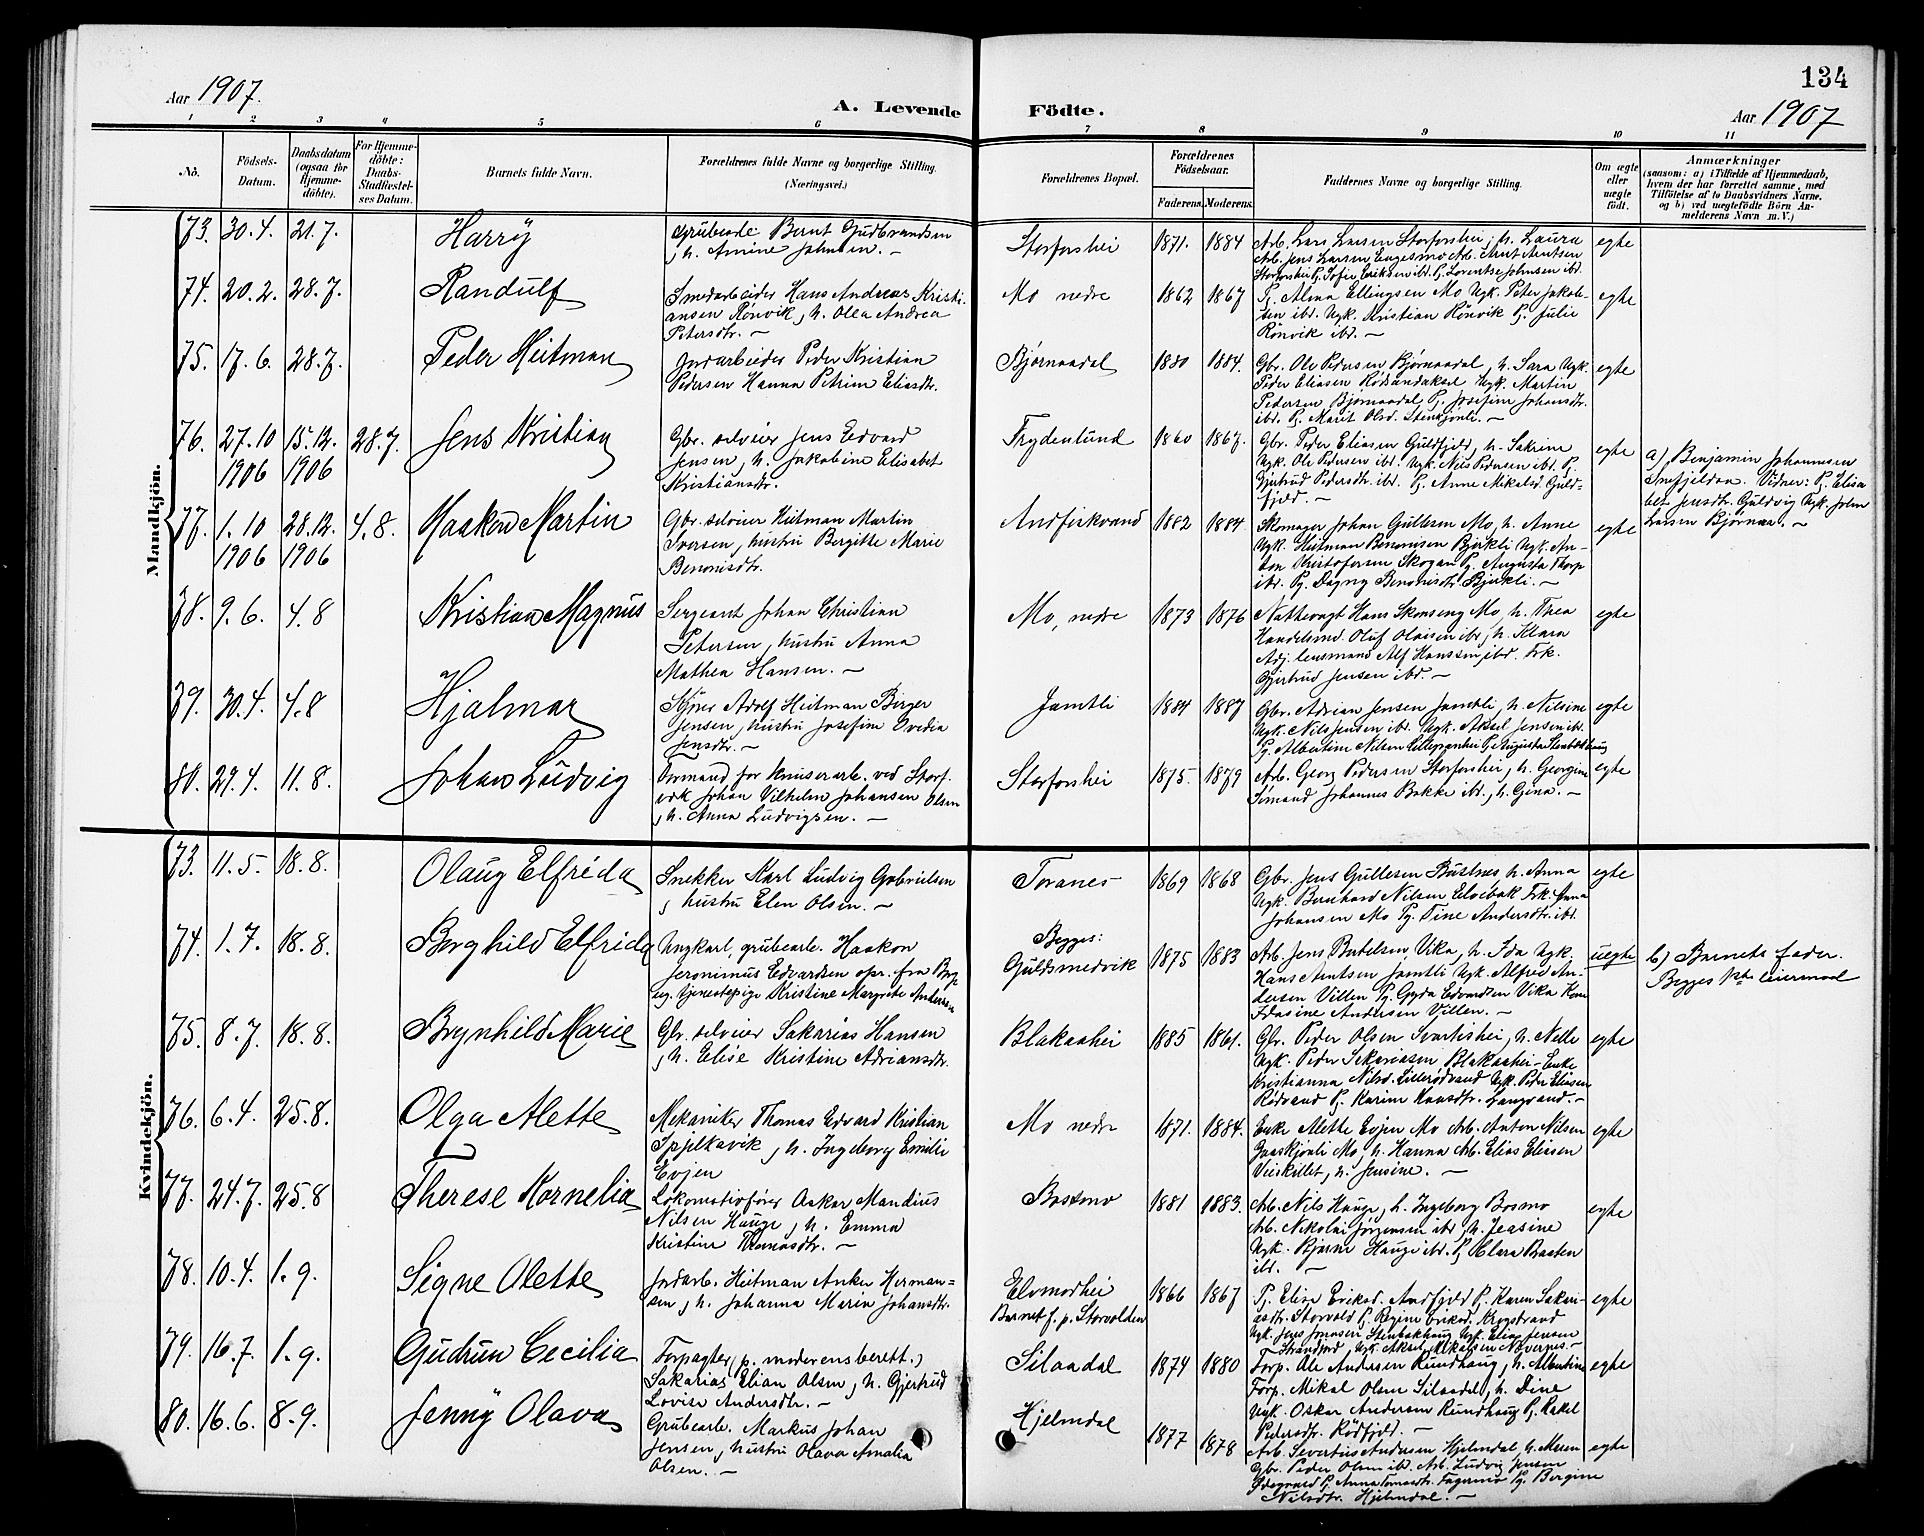 134
Aar 1907.
A. Levende
Födte.
Aar 1907
1 2 3 4 5 6 7 8 9 10 11
No.
Födsels-
Datum.
Daabsdatum
(ogsaa for
Hjemme-
döbte).
For Hjemme-
döbte:
Daabs-
Stadfæstel-
ses Datum.
Barnets fulde Navn.
Forældrenes fulde Navne og borgerlige Stilling.
(Næringsvei.)
Forældrenes Bopæl.
Forældrenes
Födselsaar.
Faderens. Moderens.
Faddernes Navne og borgerlige Stilling.
Om ægte
eller
uægte
födt.
Anmærkninger
(saasom: a) i Tilfælde af Hjemmedaab,
hvem der har forrettet samme, med
Tilföielse af to Daabsvidners Navne,
og b) ved uægtefödte Börn An-
melderens Navn m. V.)
Mandkjön.
73. 30.4. 21.7. Harry
Grubearb. Bernt Gudbrandsen
h. Amine Johnsen. —
Storforshei 1871. 1884
Arb. Lars Larsen Storforshei, h. Laura
Arb. Jens Larsen Engesmo Arb. Arnt Arntsen
Storforshei Pj. Sofie Eriksen ibd. Pj. Lorentse Johnsen ibd.
egte
74. 20.2. 28.7. Randulf
Smedarbeider Hans Andreas Kristi-
ansen Rönvik, h. Olea Andrea
Petersdtr. —
Mo nedre 1862 1867
Pj. Alma Ellingsen Mo Ugk. Peter Jakob-
sen ibd. Ugk. Kristian Rönvik Pj. Julie
Rönvik ibd. —
egte
75. 17.6. 28.7. Peder Heitman
Jordarbeider Peder Kristian
Pedersen Hanna Petrine Eliasdtr.
Bjørnaadal 1880 1884.
Gbr. Ole Pedersen Bjørnaadal, h. Sara Ugk.
Peder Eliasen Rödsandaksel Ugk. Martin
Pedersen Bjørnaadal Pj. Josefine Johansdtr.
ibd. Pj. Marit Olsd. Stenkjönli. —
egte
76. 27.10 1906 15.12. 1906 28.7 Jens Kristian
Gbr. selveier Jens Edvard
Jensen, h. Jakobine Elisabet
Kristiansdtr.
Frydenlund 1860 1867.
Gbr. Peder Eliasen Guldfjeld, h. Sakrine
Ugk. Ole Pedersen ibd. Ugk. Nils Pedersen ibd. Pj.
Gjertrud Pedersdtr. ibd. Pj. Anne Mikelsd. Guld-
fjeld. —
egte
a) Benjamin Johannesen
Snefjeldaa. Vidner: Pj. Elisa
bet Jensdtr. Guldvig Ugk. John
Larsen Bjørnaa. —
77. 1.10 1906 28.12. 1906 4.8. Haakon Martin
Gbr. selveier Heitman Martin
Iversen, hustru Bergitte Marie
Benonisdtr.
Andfiskvand 1882 1884
Skomager Johan Gullesen Mo, h. Anne
Ugk. Heitman Benonisen Bjerkli Ugk. An-
ton Kristofersen Skogan Pj. Augusta Thorp
ibd. Pj. Dagny Benonisdtr. Bjerkli. —
egte
78. 9.6. 4.8 Kristian Magnus
Sergeant Johan Christian
Petersen, hustru Anna
Mathea Hansen. —
Mo, nedre 1873 1876
Nattevagt Hans Skonseng Mo, h. Thea
Handelsmd. Oluf Olaisen ibd, h. Klara
Adj. lensmand Alf Hanssen ibd. Frk.
Gjertrud Jensen ibd. —
egte
79. 30.4. 4.8 Hjalmar
Adolf Heitman Birger
Jensen, hustru Josefine Ovedia
Jensdtr. —
Jamtli 1884 1887
Gbr. Adrian Jensen Jamtli, h. Nilsine
Ugk. Nils Jensen ibd. Ugk. Aksel Jensen ibd.
Pj. Albertine Nilsen Pj. Augusta Stenbækhaug
egte
80. 29.4. 11.8. Johan Ludvig
Formand for knuserarb. ved Storf.
verk Johan Vilhelm Johansen Olsen
, h. Anna Ludvigsen. —
Storforshei 1875. 1879
Arb. Georg Pedersen Storforshei, h. Georgine
Sömand Johannes Bakke ibd., h. Gina. —
egte
Kvindekjön.
73. 11.5. 18.8. Olaug Elfrida
Snekker Karl Ludvig Gabrielsen
, hustru Elen Olsen. —
Toranes 1869 1868
Gbr. Jens Gullesen Bustnes h. Anna
Ugk. Bernhard Nilsen Elvebak Frk. Anna
Johansen Mo Pj. Tine Andersdtr. ibd.
egte
74. 1.7. 18.8. Borghild Elfrida
Ungkarl, grubearb. Haakon
Jeronimus Edvardsen opr. fra
og tjenestepige Kristine Margrete Andersen
Begges:
Guldsmedvik 1875 1883
Arb. Jens Bertelsen, Vika, h. Ida Ugk.
Hans Arntsen Jamtli Ugk. Alfred An-
dersen Villen Pj. Gyda Edvardsen Vika Kone
Edasine Andersen Villen. —
uegte
b) Barnets fader.
Begges 1ste leiermaal
75. 8.7. 18.8. Brynhild Marie
Gbr. selveier Sakarias Hansen
, h. Elise Kristine Adriansdtr.
Blakaahei 1885 1861.
Gbr. Peder Olsen Svartishei, h. Nelle
Ugk. Peder Sakariasen Blakaahei Enke
Kristianna Nilsd. Lillerödvand Ugk. Peder Eliasen
Rödvand Pj. Karine Hansdtr. Langvand. —
egte
76. 6.4. 25.8. Olga Alette
Mekaniker Thomas Edvard Kristian
Spjelkavik, h. Ingeborg Emilie
Evjen
Mo nedre 1871. 1884.
Enke Alette Evjen Mo Arb. Anton Nilsen
Graskjönli Mo, h. Hanna Arb. Elias Eliasen
Veiskillet, h. Jensine. —
egte
77. 24.7. 25.8 Therese Kornelia
Lokomotivförer Oskar Mandius
Nilsen Hauge, h. Emma
Kristine Thomasdtr. —
Bosmo 1881 1883.
Arb. Nils Hauge, h. Ingeborg Bosmo
Arb. Nikolai Jörgensen ibd, h. Jeasine
Ugk. Bjarne Hauge ibd. Pj. Clara Baaten
ibd. —
egte
78. 10.4. 1.9. Signe Olette
Jordarb. Heitman Anker Herman-
sen, h. Johanna Marie Johansdtr.
Elvmodhei
Barnet f. p. Storvolden
1866 1867
Pj. Elise Eriksd. Andfjeld Pj. Karen Sakari-
asdtr. Storvold Pj. Regine Eriksd. Krogstrand
Ugk. Jens Jonasen Stenbækhaug Ugk. Elias Jensen
Strandjord, Ugk. Aksel Mikalsen Nævernes. —
egte
79. 16.7. 1.9. Gudrun Cecilia
Forpagter (p. moderens berett.)
Sakarias Elian Olsen, h. Gjertrud
Lovise Andersdtr. —
Silaadal 1874 1880
Forp. Ole Andersen Rundhaug, h. Albertine
Forp. Mikal Olsen Silaadal, h. Dine
Ugk. Oskar Andersen Rundhaug Pj. Rakel
Pedersdtr. Rödfjeld. —
egte
80. 16.6. 8.9. Jenny Olava
Grubearb. Markus Johan
Jensen, hustru Olava Amalia
Olsen. —
Hjelmdal 1877 1878
Arb. Severtius Andersen Hjelmdal, h. Maren
Gbr. Peder Olsen ibd. Arb. Ludvig Jensen
Ødegaard Pj. Anna Tomasdtr. Fagermo Pj. Bergine
Nilsdtr. Hjelmdal. —
egte